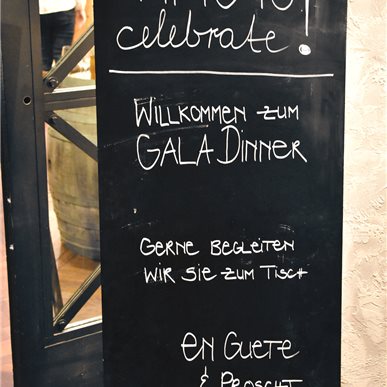 celebrate!
WILLKOMMEN ZUM
GALA DINNER
GERNE BEGLEITEN
WIR SIE ZUM TISCH
EN GUETE
& PROSCHT